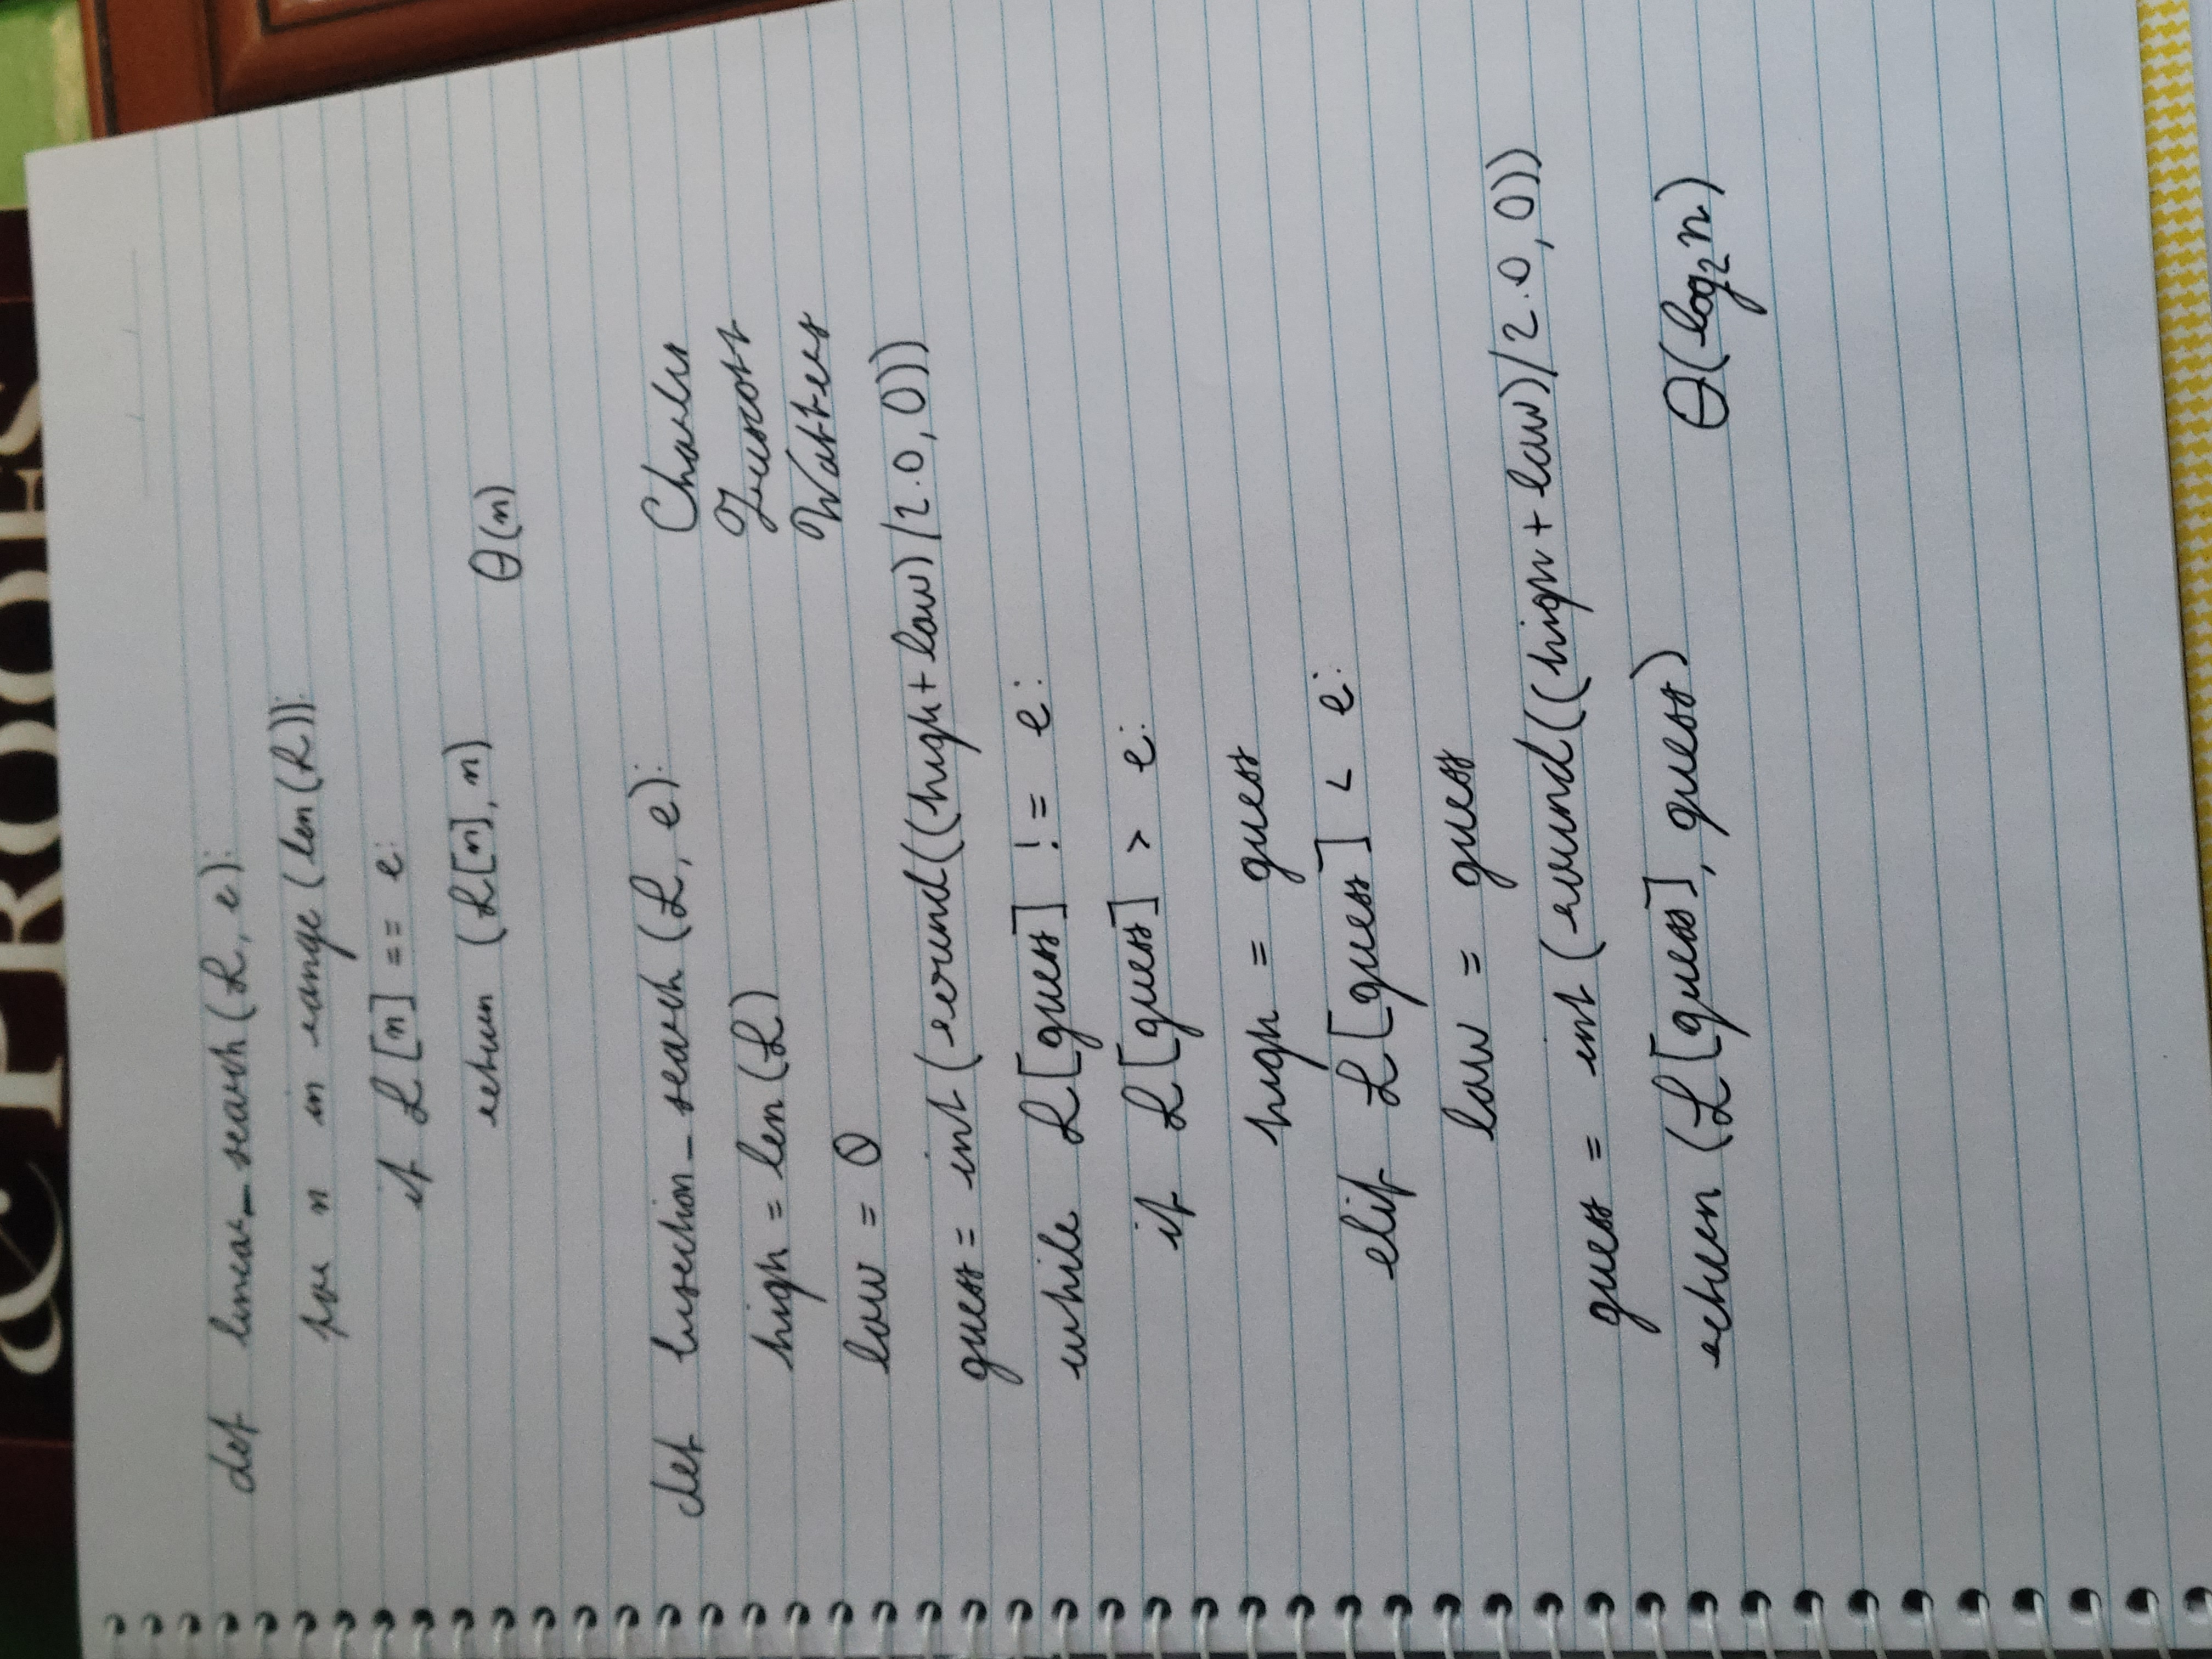 & PROOFS
def linear_search(L, e):
for n in range(len(L)):
if L[n] == e:
return (L[n], n)
θ(n)
def bisection_search(L, e):
high = len(L)
low = 0
guess = int(round((high+low)/2.0, 0))
while L[guess] != e:
if L[guess] > e:
high = guess
elif L[guess] < e:
low = guess
guess = int(round((high+low)/2.0, 0))
return (L[guess], guess)
θ(log₂n)
Charles
Truscott
Watters